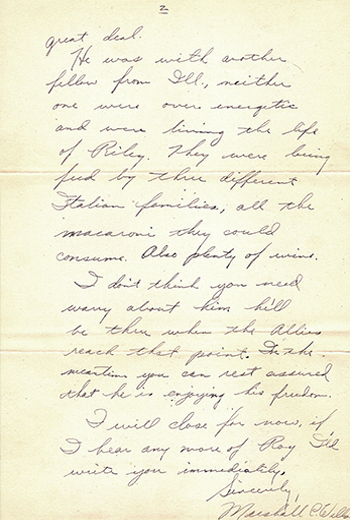 2
great deal.
He was with another
fellow from Ill., neither
one were over energetic
and were living the life
of Riley. They were being
feed by three different
Italian families, all the
macaroni they could
consume. Also plenty of wine.
I don't think you need
worry about him he'll
be there when the Allies
reach that point. In the
meantime you can rest assured
that he is enjoying his freedom.
I will close for now, if
I hear any more of Roy I'll
write you immediately.
Sincerely,
Marshall C